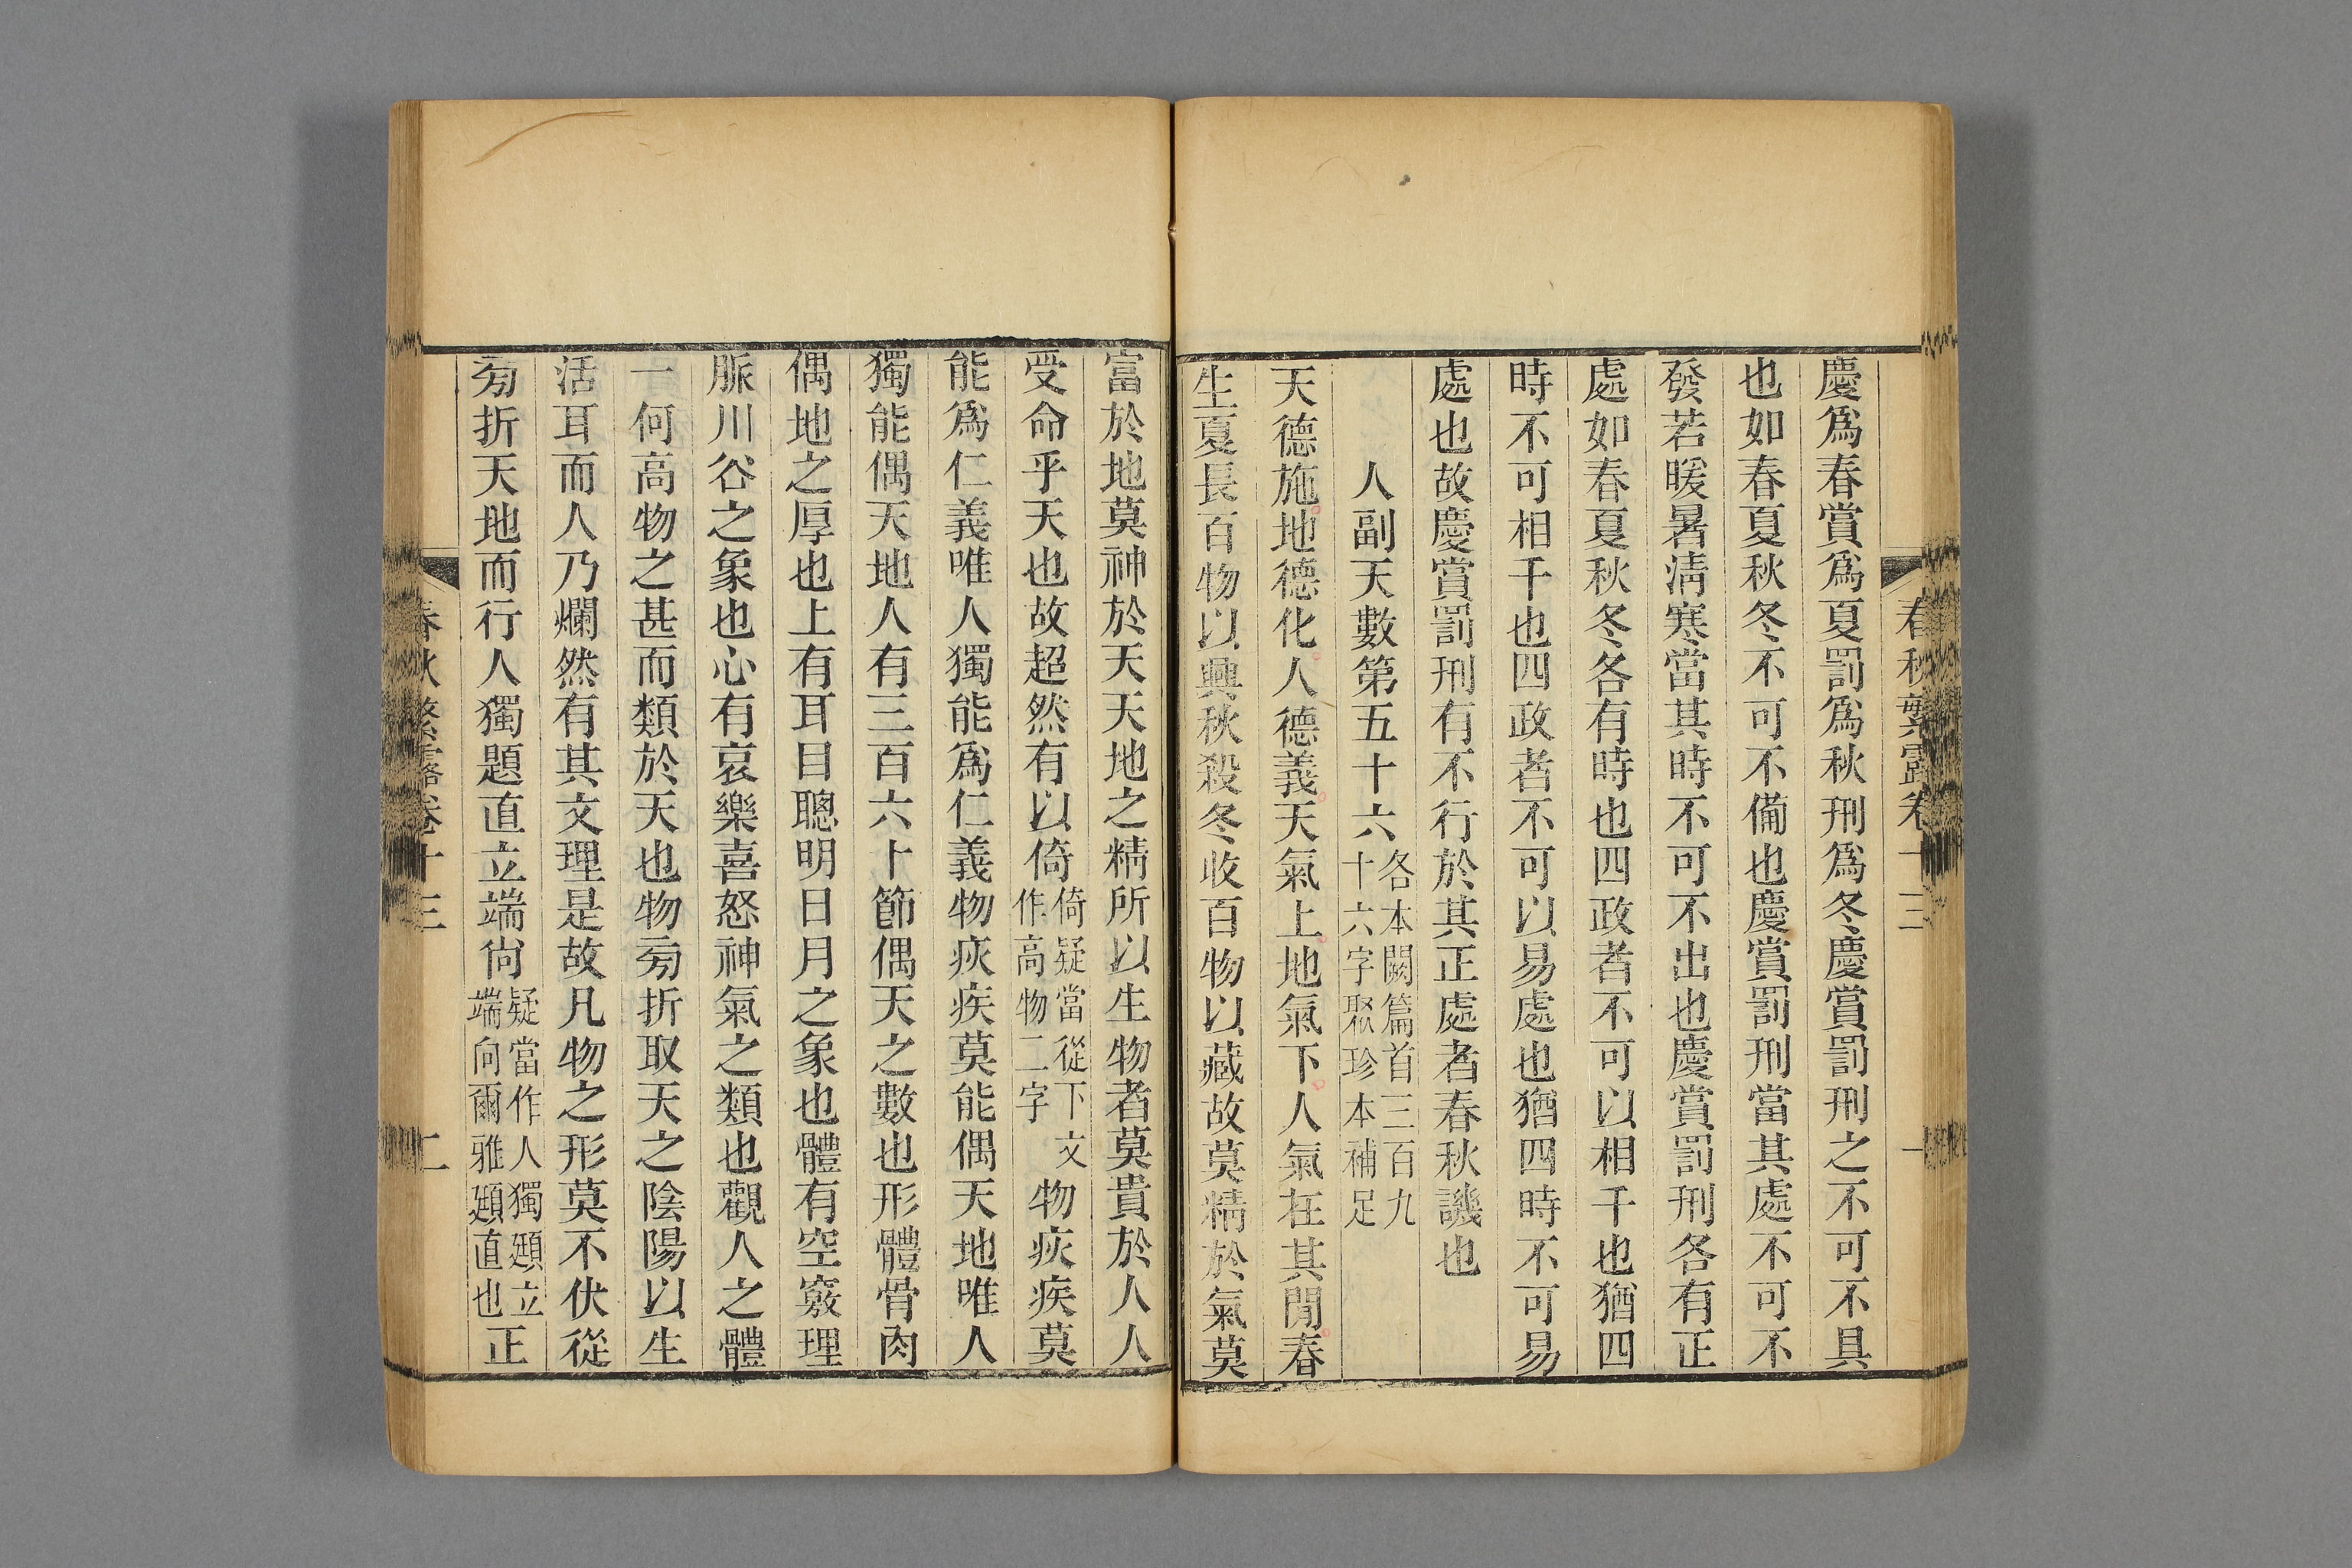 慶爲春賞爲夏罰爲秋刑爲冬慶賞罰刑之不可不具
也如春夏秋冬不可不備也慶賞罰刑當其處不可不
發若暖暑淸寒當其時不可不出也慶賞罰刑各有正
處如春夏秋冬各有時也四政者不可以相干也猶四
時不可相干也四政者不可以易處也猶四時不可易
處也故慶賞罰刑有不行於其正處者春秋譏也
人副天數第五十六各本闕篇首三百九十六字聚珍本補足
天德施地德化人德義天氣上地氣下人氣在其閒春
生夏長百物以興秋殺冬收百物以藏故莫精於氣莫
富於地莫神於天天地之精所以生物者莫貴於人人
受命乎天也故超然有以倚倚疑當從下文作高物二字物疢疾莫
能爲仁義唯人獨能爲仁義物疢疾莫能偶天地唯人
獨能偶天地人有三百六十節偶天之數也形體骨肉
偶地之厚也上有耳目聰明日月之象也體有空竅理
脈川谷之象也心有哀樂喜怒神氣之類也觀人之體
一何高物之甚而類於天也物旁折取天之陰陽以生
活耳而人乃爛然有其文理是故凡物之形莫不伏從
旁折天地而行人獨題直立端尙疑當作人獨頲立端向爾雅頲直也正
春秋繁露卷十三
一
春秋繁露卷十三
二